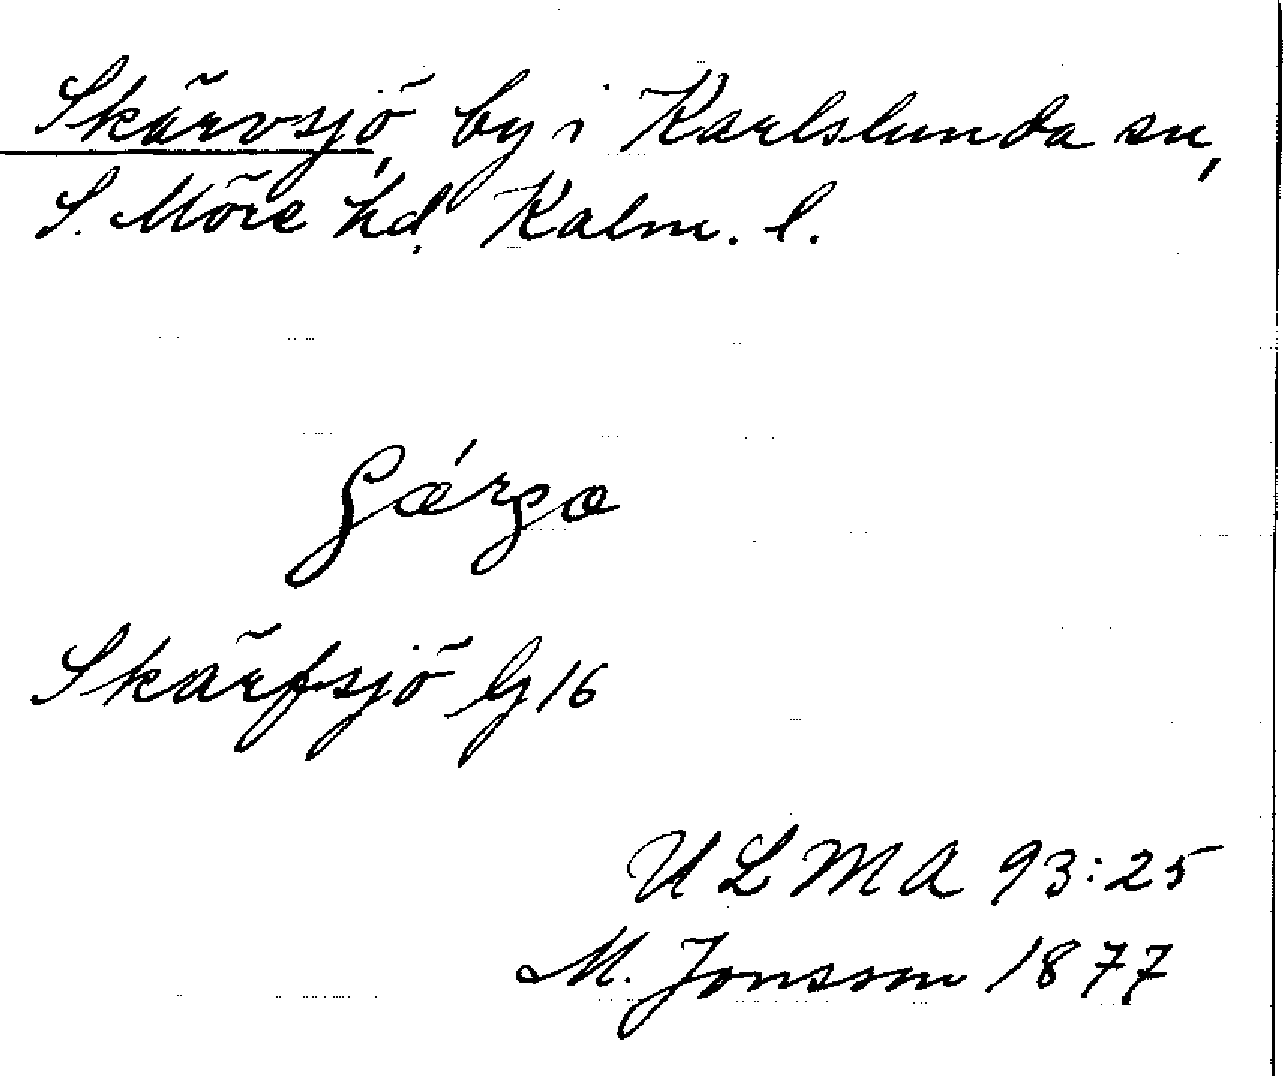 Skärvsjö, by i Karlslunda sn,
S. Möre hd. Kalm. l.
Skärfsjö G 16
ULMA 93:25
M. Jonsson 1877